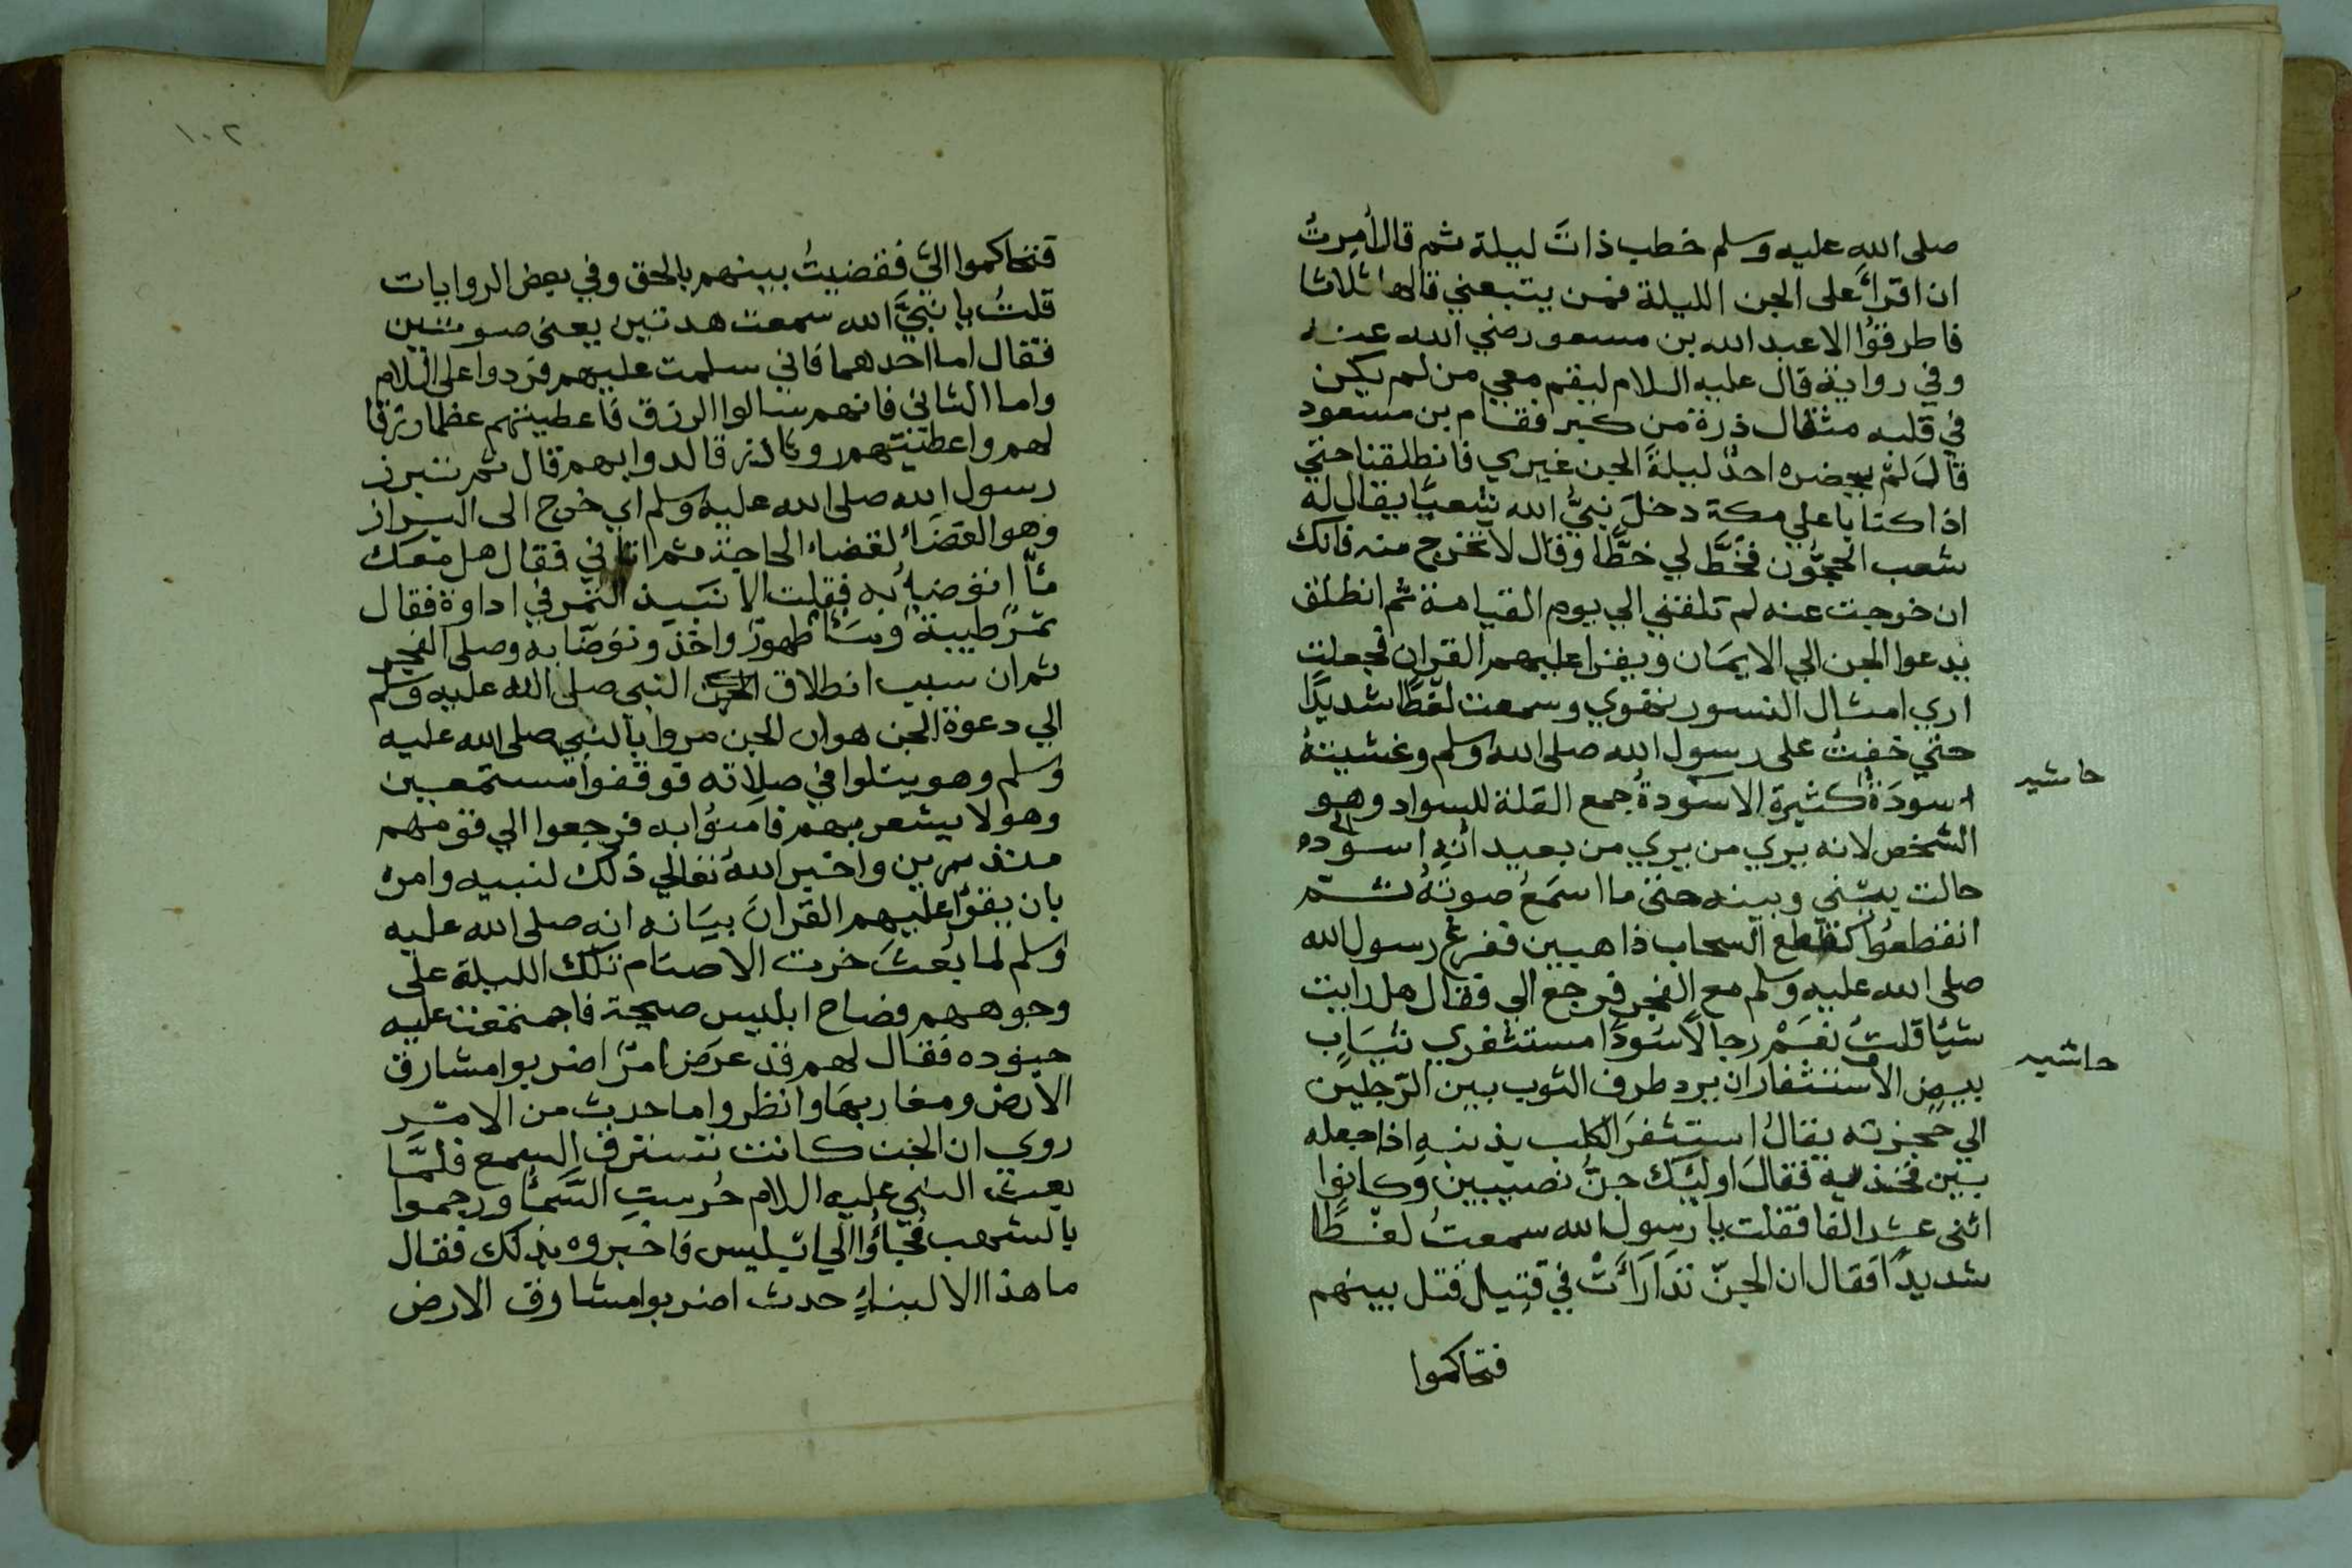 صلى الله عليه وسلم خطب ذاتَ ليلة ثم قال أمرتُ
ان اقرأ على الجن الليلة فمن يتبعني قالها ثلاثا
فاطرقوا الا عبد الله بن مسعود رضي الله عنه
وفي رواية قال عليه السلام ليقم معي من لم يكن
في قلبه مثقال ذرة من كبر فقام بن مسعود
قال لم يحضره احدٌ ليلة الجن غيري فانطلقنا حتي
اذا كنا با علي مكة دخل نبيُّ الله شعبًا يقال له
شعب الحجُّون فخطَّ لي خطًّا وقال لا تخرج منه فانك
ان خرجت عنه لم تلقني الي يوم القيامة ثم انطلق
يدعوا الجن الي الايمان ويقرا عليهم القران فجعلت
اري امثال النسور تهوي وسمعت لغطًا شديدًا
حتي خفتُ على رسول الله صلى الله وسلم وغشيتهُ
اسودَةٌ كثيرة الاسودةُ جمع القلة للسواد وهو
حاشيه
الشخص لانه يري من يري من بعيد انه اسوده
حالت بيني وبينه حتي ما اسمعُ صوتهُ ثم
انقطعوا كقطع السحاب ذاهبين ففرغ رسول الله
صلى الله عليه وسلم مع الفجر فرجع الي فقال هل رايت
شيًا قلتُ نعمْ رجالًا سُودًا مستثفري ثيَابٍ
حاشيه
بيض الاستثفار ان يرد طرف الثوب بين الرّجلين
الي حجزته يقالُ استثفرَ الكلب بذنبهِ اذا جعله
بين فخذيه فقالَ اوليك جنُّ نصيبين وكانوا
اثنى عشر الفا فقلت يا رسول الله سمعتُ لغطًا
شديدًا فقال ان الجنّ تدَارَأَتْ في قتيل قتل بينهم
فتحاكموا
١٠٢
فتحاكموا اليّ فقضيتُ بينهم بالحق وفي بعض الروايات
قلتُ يا نبيَّ الله سمعت هدتين يعني صوتين
فقال اما احدهما فاني سلمت عليهم فردوا على السلام
واما الثاني فانهم سالوا الرزق فاعطيتهم عظما رزقا
لهم واعطيتهم روثا رزقا لدوابهم قال ثم تبرز
رسول الله صلى الله عليه وسلم اي خرج الى البراز
وهو الفضَا لقضاء الحاجة ثم اتاني فقال هل معك
مآ اتوضا به فقلت الا نبيذ التمر في اداوة فقال
تمرٌ طيبة ومَآ طهورٌ واخذ وتوضّا به وصلى الفجر
ثم ان سبب انطلاق النبي صلى الله عليه وسلم
الي دعوة الجن هو ان الجن مروا بالنبي صلى الله عليه
وسلم وهو يتلوا في صلاته فوقفوا مستمعين
وهو لا يشعر بهم فامنوا به فرجعوا الي قومهم
منذرين واخبر اللهُ تعالي ذلك لنبيه وامره
بان يقرَا عليهم القران بيانه انه صلى الله عليه
وسلم لما بُعثَ خرت الاصنام تلك الليلة على
وجوههم فصاح ابليس صيحة فاجتمعت عليه
جنوده فقال لهم قد عرَض امرٌ اضربوا مشارق
الارض ومغاربها وانظروا ما حدث من الامر
روي ان الجن كانت تسترق السمع فلمَّا
بعث النبي عليه السلام حُرستِ السَّمآ ورجموا
بالشهب فجاؤا الي ابليس فاخبروه بذلك فقال
ما هذا الا لبناءٍ حدث اضربوا مشارق الارض